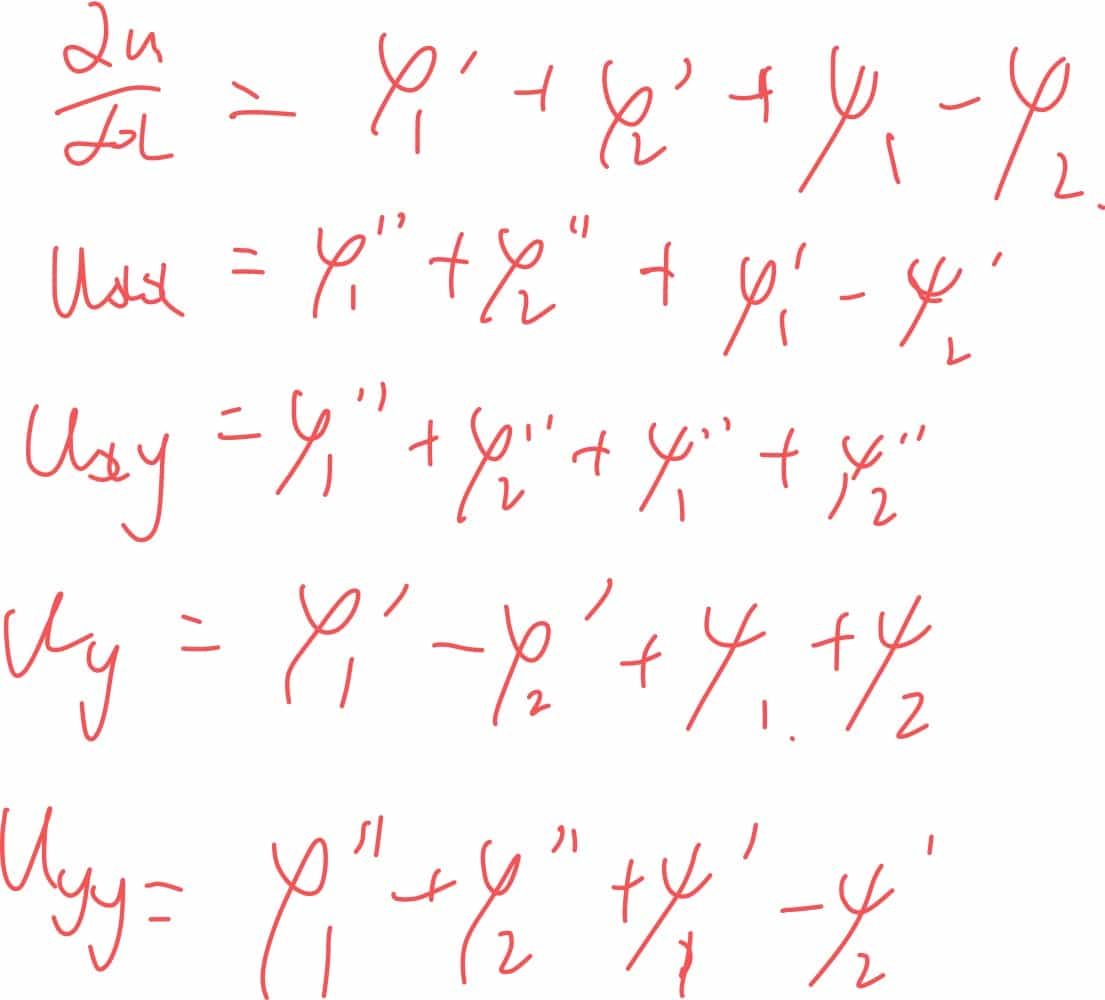 ∂u/∂x = φ₁′ + φ₂′ + ψ₁ − ψ₂.
uₓₓ = φ₁″ + φ₂″ + ψ₁′ − ψ₂′
u_xy = φ₁″ + φ₂″ + ψ₁″ + ψ₂″
u_y = φ₁′ − φ₂′ + ψ₁. + ψ₂
u_yy = φ₁″ + φ₂″ + ψ₁′ − ψ₂′